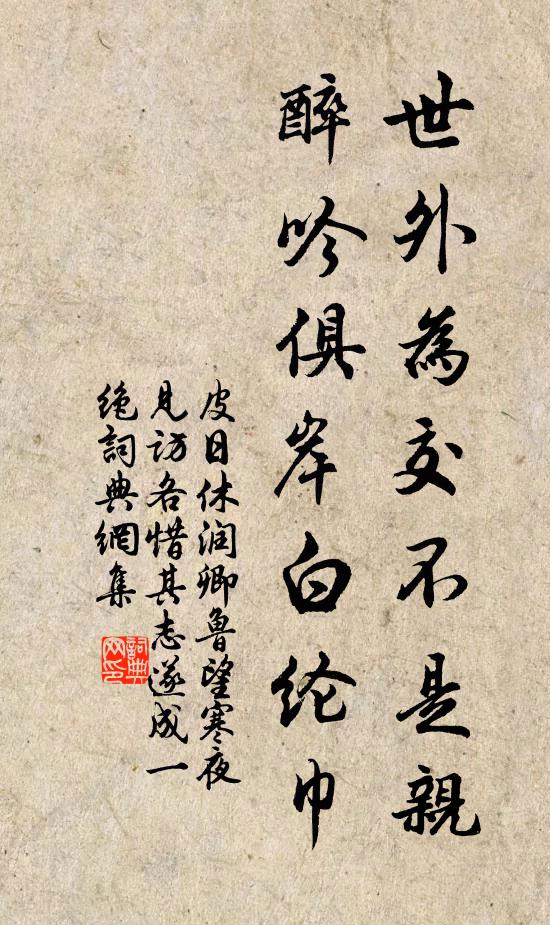 世外為交不是親
醉吟俱岸白纶巾
皮日休润卿鲁望寒夜
見访各惜其志遂成一
绝詞典網集
詞典网印